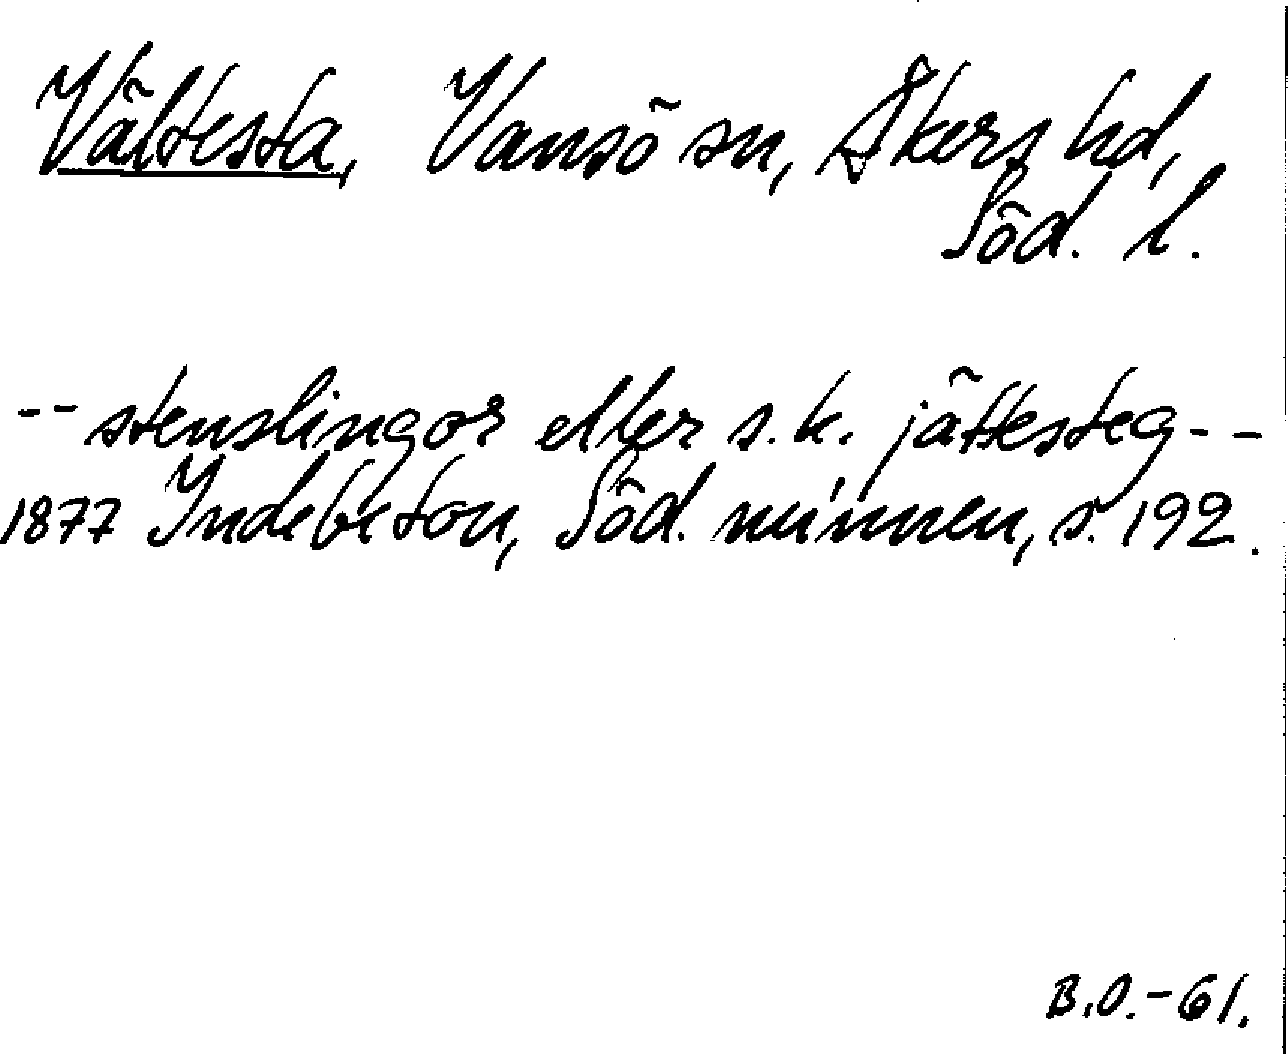 Vältesta, Vansö sn, Åkers hd,
Söd. l.
-- stenslingor eller s.k. jättesteg --
1877 Indebetou, Söd. minnen, s. 192.
B.O.-61.